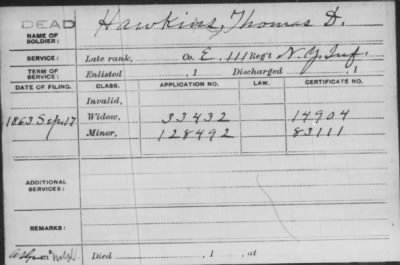 DEAD
NAME OF SOLDIER: Hawkins, Thomas D.
SERVICE: Late rank, Co. E, 111 Reg't N.Y. Inf.
TERM OF SERVICE: Enlisted , 1 Discharged , 1
DATE OF FILING. CLASS. APPLICATION NO. LAW. CERTIFICATE NO.
Invalid,
1863 Sep. 17 Widow, 33432 14904
Minor, 128492 83111
ADDITIONAL SERVICES:
REMARKS:
Died , 1 , at